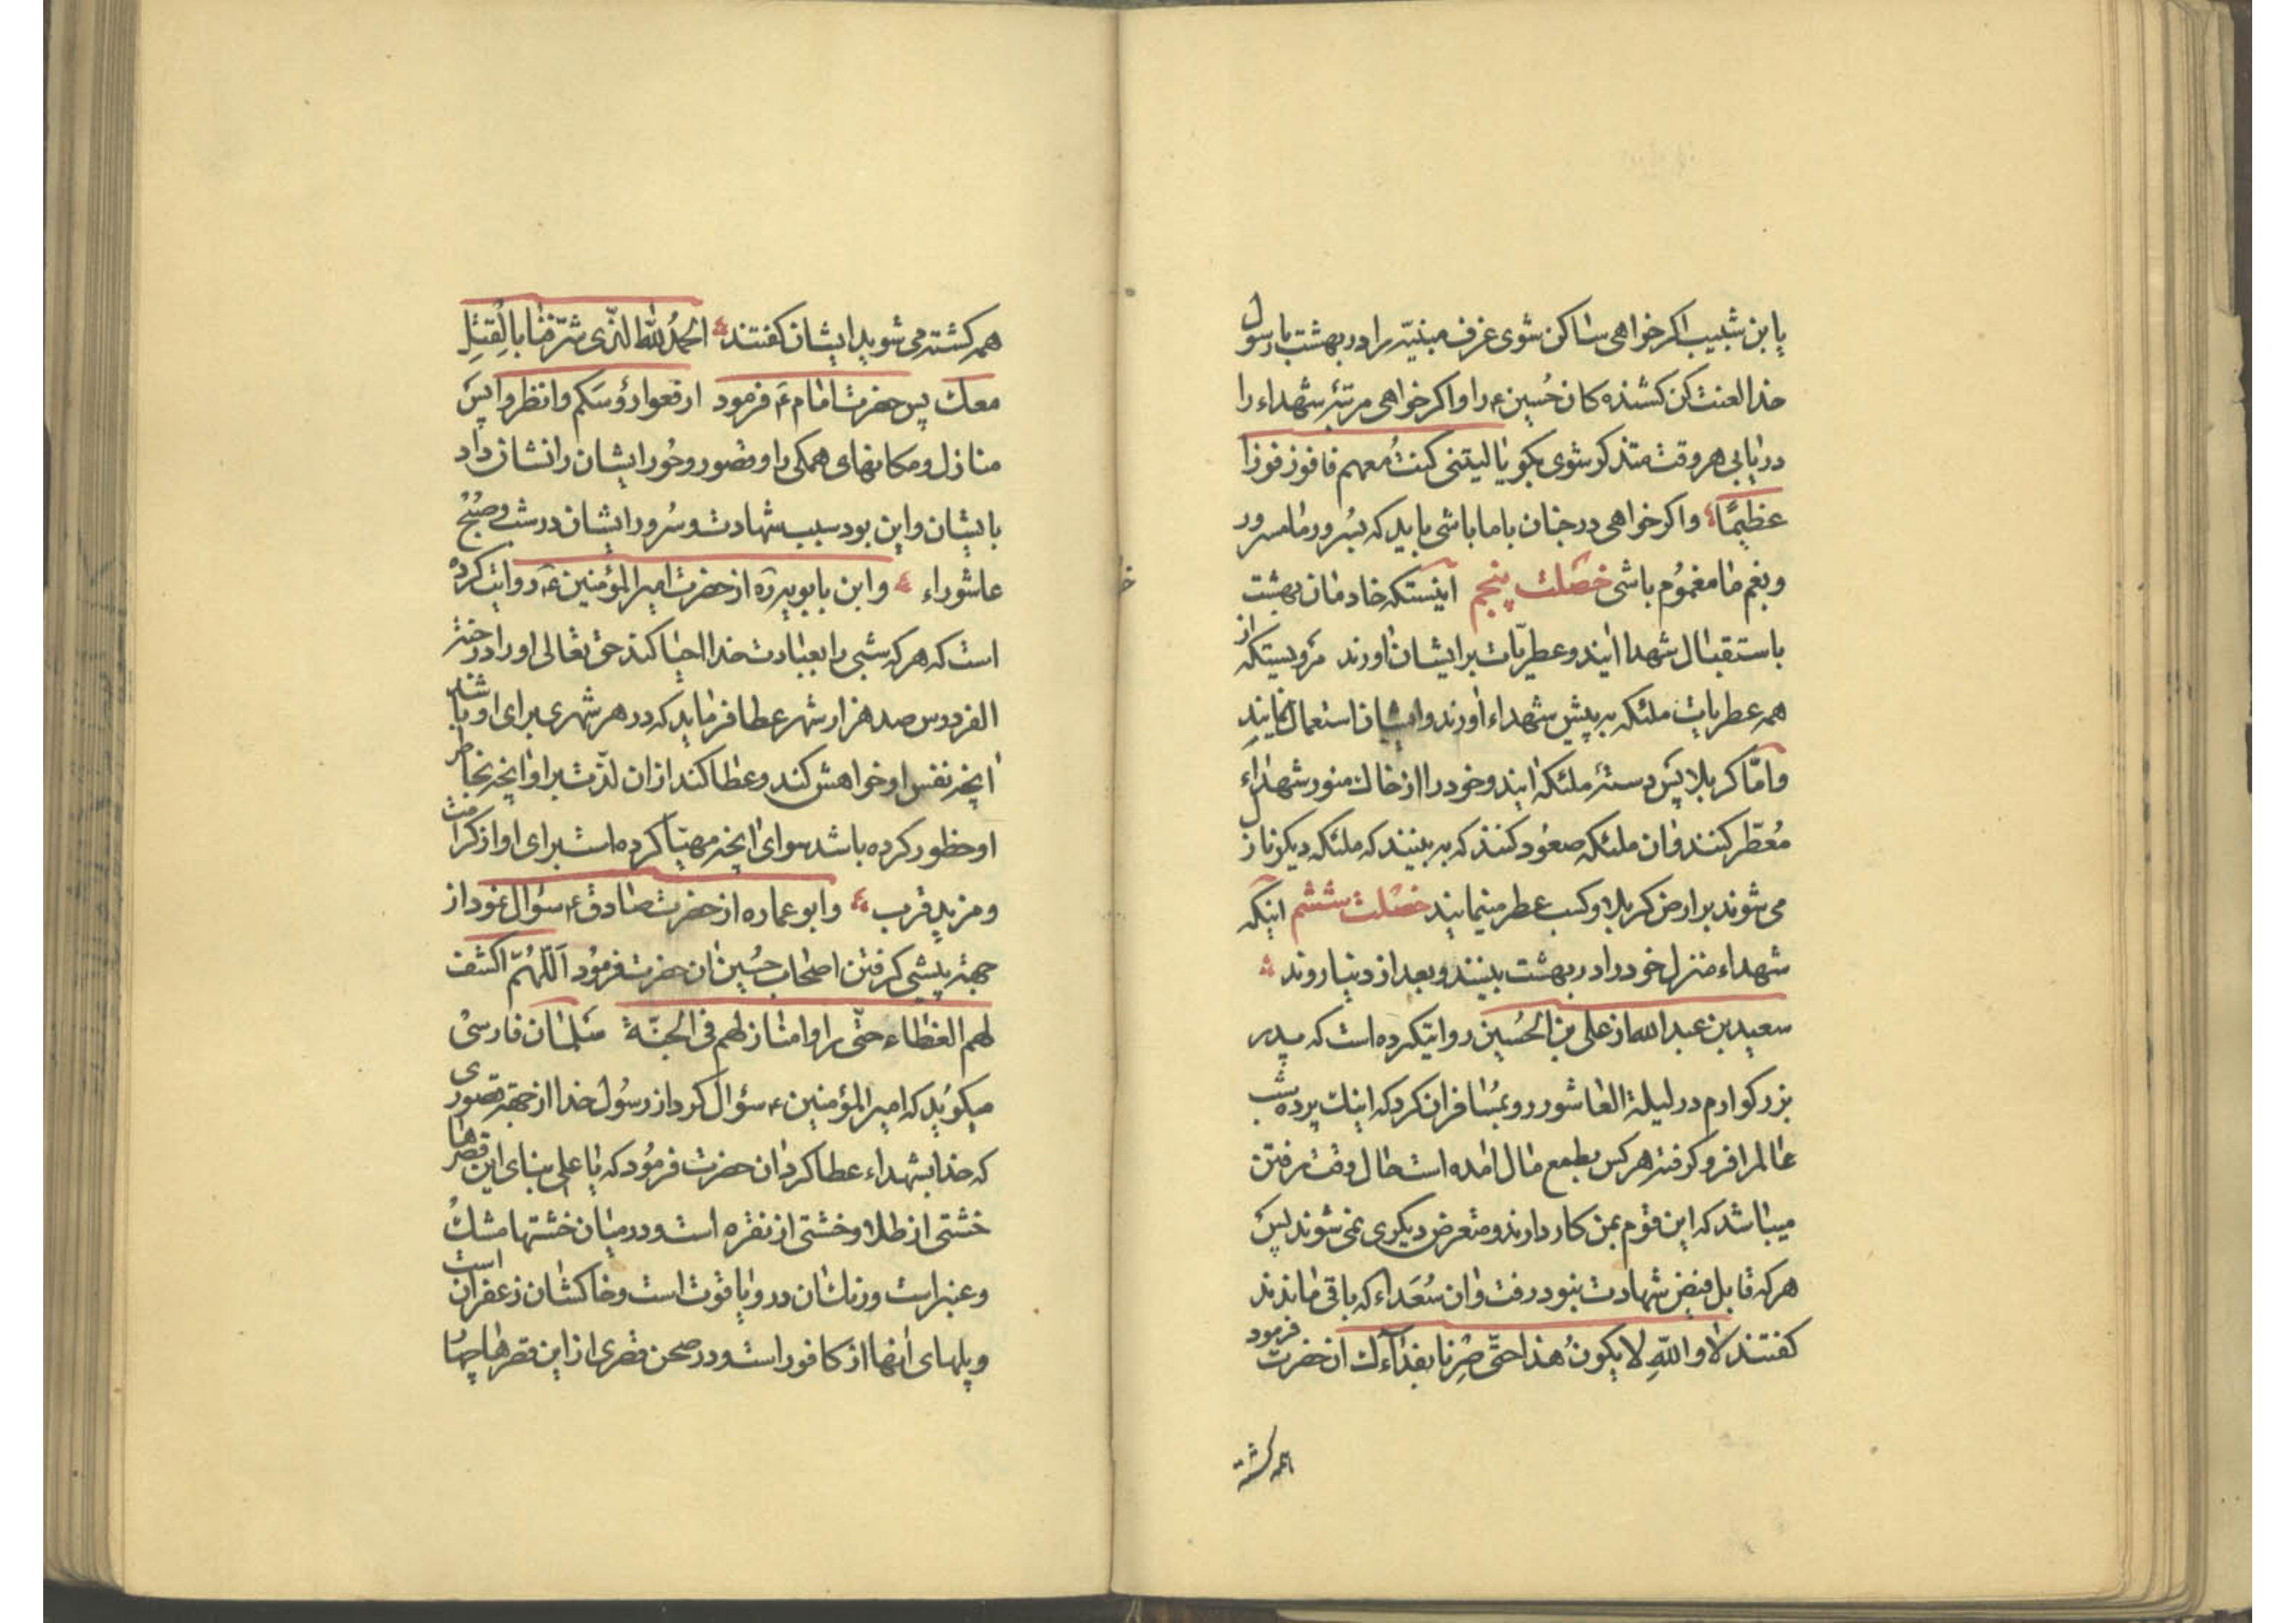 یابن شبیب اکر خواهی ساکن شوی غرف مبنیّه را در بهشت با رسول
خدا لعنت کن کشنده کان حُسین ع را و اکر خواهی مرتبۀ شهداء را
دریابی هر وقت متذکر شوی بکو یا لیتنی کنتُ معهم فافوز فوزا
عظیمًا و اکر خواهی در جنان با ما باشی باید که بسُرور ما مسرور
و بغم ما مغمُوم باشی خصلت پنجم اینستکه خادمان بهشت
باستقبال شهدا ایند و عطریّات برایشان اورند مرویستکه از
همه عطریات ملئکه به پیش شهداء اورند و ایشان استعمال نمایند
و امّا کربلا پس دستۀ ملئکه ایند و خود را از خاک منور شهداء
مُعطّر کنند و ان ملئکه صعُود کنند که به بینند که ملئکه دیکر نازل
می شوند بر ارض کربلا و کسب عطر مینمایند خصلت ششم اینکه
شهداء منزل خود را در بهشت بینند و بعد از دنیا روند
سعید بن عبدالله از علی بن الحُسین روایتکرده است که پدر
بزرکوارم در لیلة العاشور رو بمُسافران کرد که اینک پرده شب
عالم را فرو کرفته هر کس بطمع مال امده است حال وقت رفتن
میباشد که این قوم بمن کار دارند و متعرض دیکری نمی شوند پس
هر که قابل فیض شهادت نبود رفت و ان سُعَداء که باقی ماندند
کفتند لا والله لا یکونُ هذا حتّی صِرنا بفداءک ان حضرت فرمود
همه کشته
همه کشته می شوید ایشان کفتند الحمدُ لله الّذی شرّفنا بالقتلِ
معک پس حضرت امام ع فرمود ارفعوا رؤسَکم وانظروا پس
منازل و مکانهای همکی را و قصور و حُور ایشان را نشان داد
بایشان و این بود سبب شهادت و سُرور ایشان در شب و صُبح
عاشوراء و ابن بابویه ره از حضرت امیرالمؤمنین ع روایت کرده
است که هر که شبی را بعبادت خدا احیا کند حق تعالی او را در جنّة
الفردوس صد هزار شهر عطا فرماید که در هر شهری برای او باشد
انچه نفس او خواهش کند و عطا کند از ان لذّت برد او انچه بخاطر
او خطور کرده باشد سوای انچه مهیّا کرده است برای او از کرامت
و مزید قرب و ابو عماره از حضرت صادق ع سؤال نمود از
جهة پیشی کرفتن اصحاب حُسین ان حضرت فرمُود اَللّهُمّ اکشف
لهم الغطاء حتّی راوا منازلهم فی الجنّة سَلمان فارسی
میکویُد که امیرالمؤمنین ع سؤال کرد از رسُول خدا از جهة قصوری
که خدا بشهداء عطا کرد ان حضرت فرمُود که یا علی بنای این قصرها
خشتی از طلا و خشتی از نقره است و در میان خشتها مشک
و عنبر است و زنک ان در و یاقوت است و خاکشان زعفران است
و پلهای انها از کافور است و در صحن قصری از این قصرها چهار